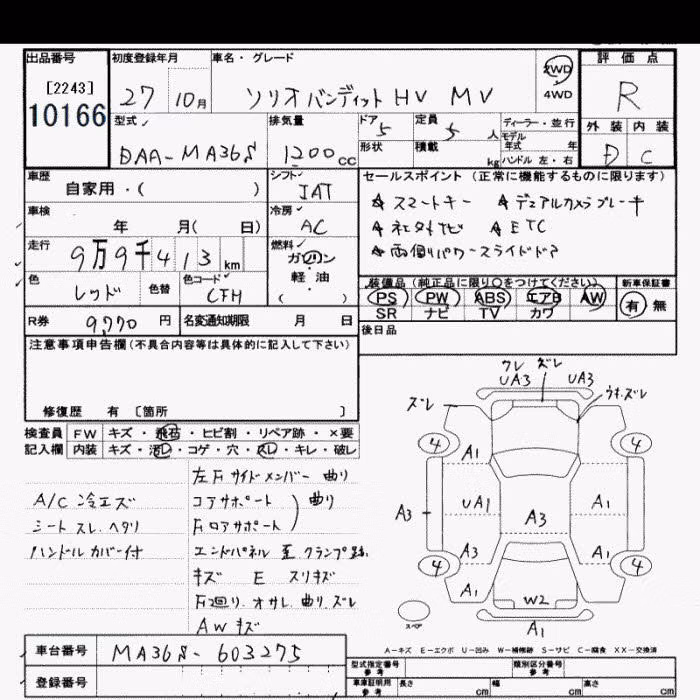 出品番号 初度登録年月 車名・グレード 評価点
[2243]
10166
27 10月 ソリオバンディット HV MV 2WD R
4WD
型式 排気量 ドア 定員 ディーラー・並行 外装 内装
5 5 人 モデル年式 年
DAA-MA36S 1200 cc 形状 積載 kg ハンドル 左・右 D C
車歴 シフト セールスポイント (正常に機能するものに限ります)
自家用・( ) IAT ☆ スマートキー ☆ デュアルカメラブレーキ
車検 冷房
年 月( 日) AC ☆ ETC
走行 燃料 ☆ 両側パワースライドドア
9万9千413 km ガソリン
色 色替 色コード 軽・油
レッド CFH ( )
装備品 (純正品に限り○をつけてください) 新車保証書
PS PW ABS エアB AW 有 無
SR ナビ TV カワ
R券 9,770 円 名変通知期限 月 日 後日品
注意事項申告欄 (不具合内容等は具体的に記入して下さい)
修復歴 有 [箇所 ]
検査員 FW キズ・飛石・ヒビ割・リペア跡・×要
記入欄 内装 キズ・汚レ・コゲ・穴・スレ・キレ・破レ
左F サイドメンバー 曲り
A/C 冷エズ コアサポート 曲り
シート スレ ヘタリ Fロアサポート
ハンドル カバー付 エンドパネル 歪 クランプ跡
キズ E スリキズ
F廻り オサレ 曲り ズレ
AW キズ
クレ ズレ
UA3 UA3
ズレ ウキ.ズレ
4 4
A1
UA1 A1
A3 A3
A3 A1
4 4
A1 A1
W2
スペア A1
A-キズ E-エクボ U-凹み W-補修跡 S-サビ C-腐食 XX-交換済
車台番号 MA36S-603275
登録番号
型式指定番号 参考 類別区分番号 参考
車庫証明用 参考 長さ cm 幅 cm 高さ cm